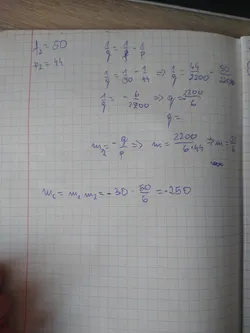 f₂ = 50
p₂ = 44
1/q = 1/f - 1/p
1/q = 1/50 - 1/44 ⇒ 1/q = 44/2200 - 50/2200
1/q = - 6/2200 ⇒ q = 2200/6
q =
m₂ = - q/p ⇒ m = 2200/6·44 ⇒ m = 50/6
m_c = m₁ m₂ = - 30 · 50/6 = -250